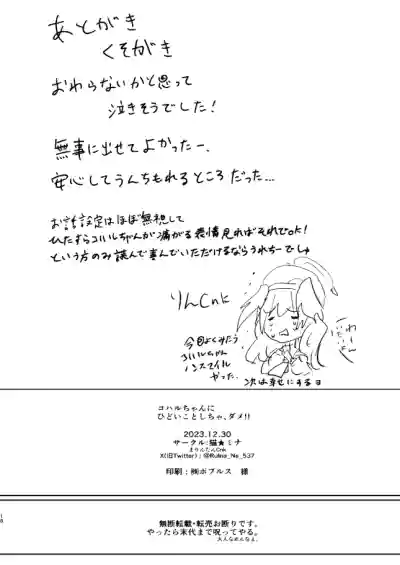 あとがき
くそがき
おわらないかと思って
泣きそうでした!
無事に出せてよかったー、
安心してうんちもれるところだった…
お話設定はほぼ無視して
ひたすらコハルちゃんが痛がる表情見ればそれでok!
という方のみ読んで喜んでいただけるならうれちーでしゅ
りんCnk
今回よくみたら
コハルちゃん
ノンスマイル
やった…
次は幸せにするヨ
コハルちゃんに
ひどいことしちゃ、ダメ!!
2023.12.30
サークル:猫★ミナ
X(旧Twitter):@Rulina_Na_537
印刷:㈲ポプルス 様
無断転載・転売お断りです。
やったら末代まで呪ってやる。
大人なめんなよ。
18